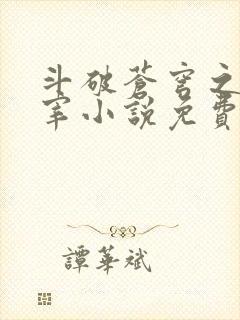 斗破蒼穹之
宰小說免費
譚華斌